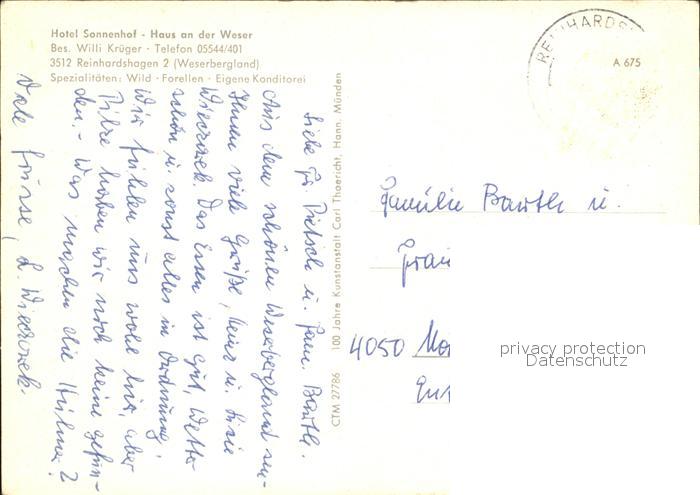 Hotel Sonnenhof - Haus an der Weser
Bes. Willi Krüger · Telefon 05544/401
3512 Reinhardshagen 2 (Weserbergland)
Spezialitäten: Wild · Forellen · Eigene Konditorei
REINHARDS
A 675
Liebe Fr. Pietsch u. Fam. Barth.
Aus dem schönen Weserbergland sen-
Ihnen viele Grüße, Heinz u. Susie
Wieczorek. Das Essen ist gut, Wetter
schön u. sonst alles in Ordnung.
Wir fühlen uns wohl hier, aber
Pilze haben wir noch keine gefun-
den. - Was machen die Hühner?
Viele Grüsse, L. Wieczorek.
CTM 27786 100 Jahre Kunstanstalt Carl Thoericht, Hann. Münden
Familie Barth u.
Frau
4050
privacy protection
Datenschutz